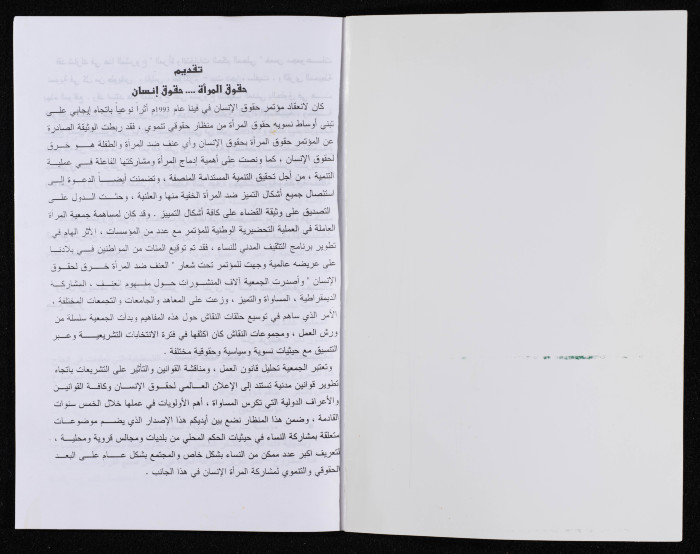 تقديم
حقوق المرأة .... حقوق إنسان
كان لانعقاد مؤتمر حقوق الإنسان في فينا عام 1993م أثراً نوعياً باتجاه إيجابي على
تبني أوساط نسويه حقوق المرأة من منظار حقوقي تنموي ، فقد ربطت الوثيقة الصادرة
عن المؤتمر حقوق المرأة بحقوق الإنسان وأي عنف ضد المرأة والطفلة هو خرق
لحقوق الإنسان ، كما ونصت على أهمية إدماج المرأة ومشاركتها الفاعلة في عملية
التنمية ، من أجل تحقيق التنمية المستدامة المنصفة ، وتضمنت أيضاً الدعوة إلى
استئصال جميع أشكال التميز ضد المرأة الخفية منها والعلنية ، وحثت الدول على
التصديق على وثيقة القضاء على كافة أشكال التمييز . وقد كان لمساهمة جمعية المرأة
العاملة في العملية التحضيرية الوطنية للمؤتمر مع عدد من المؤسسات ، الأثر الهام في
تطوير برنامج التثقيف المدني للنساء ، فقد تم توقيع المئات من المواطنين في بلادنا
على عريضه عالمية وجهت للمؤتمر تحت شعار " العنف ضد المرأة خرق لحقوق
الإنسان " وأصدرت الجمعية آلاف المنشورات حول مفهوم العنف ، المشاركه
الديمقراطية ، المساواة والتميز ، وزعت على المعاهد والجامعات والتجمعات المختلفة ،
الأمر الذي ساهم في توسيع حلقات النقاش حول هذه المفاهيم وبدأت الجمعية سلسلة من
ورش العمل ، ومجموعات النقاش كان اكثفها في فترة الانتخابات التشريعية وعبر
التنسيق مع حيثيات نسوية وسياسية وحقوقية مختلفة .
وتعتبر الجمعية تحليل قانون العمل ، ومناقشة القوانين والتأثير على التشريعات باتجاه
تطوير قوانين مدنية تستند إلى الإعلان العالمي لحقوق الإنسان وكافة القوانين
والأعراف الدولية التي تكرس المساواة ، أهم الأولويات في عملها خلال الخمس سنوات
القادمة ، وضمن هذا المنظار نضع بين أيديكم هذا الإصدار الذي يضم موضوعات
متعلقة بمشاركة النساء في حيثيات الحكم المحلي من بلديات ومجالس قروية ومحلية ،
لتعريف اكبر عدد ممكن من النساء بشكل خاص والمجتمع بشكل عام على البعد
الحقوقي والتنموي لمشاركة المرأة الإنسان في هذا الجانب .